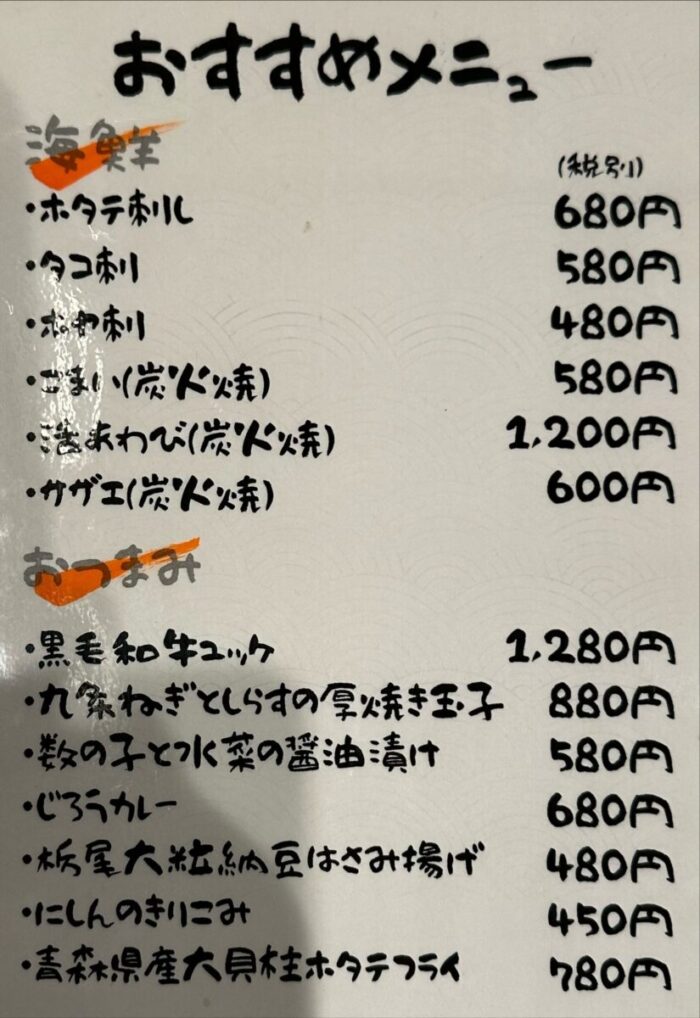 おすすめメニュー
海鮮
(税別)
・ホタテ刺し 680円
・タコ刺 580円
・ホヤ刺 480円
・こまい(炭火焼) 580円
・活あわび(炭火焼) 1,200円
・サザエ(炭火焼) 600円
おつまみ
・黒毛和牛ユッケ 1,280円
・九条ねぎとしらすの厚焼き玉子 880円
・数の子と水菜の醤油漬け 580円
・じろうカレー 680円
・栃尾大粒納豆はさみ揚げ 480円
・にしんのきりこみ 450円
・青森県産大貝柱ホタテフライ 780円